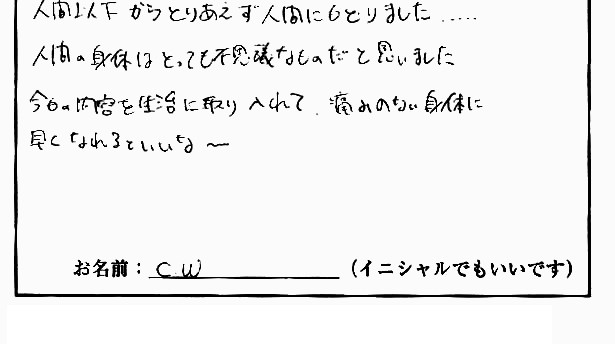 人間以下からとりあえず人間にもどりました.....
人間の身体はとっても不思議なものだと思いました
今日の内容を生活に取り入れて、痛みのない身体に
早くなれるといいな〜
お名前： C.W （イニシャルでもいいです）